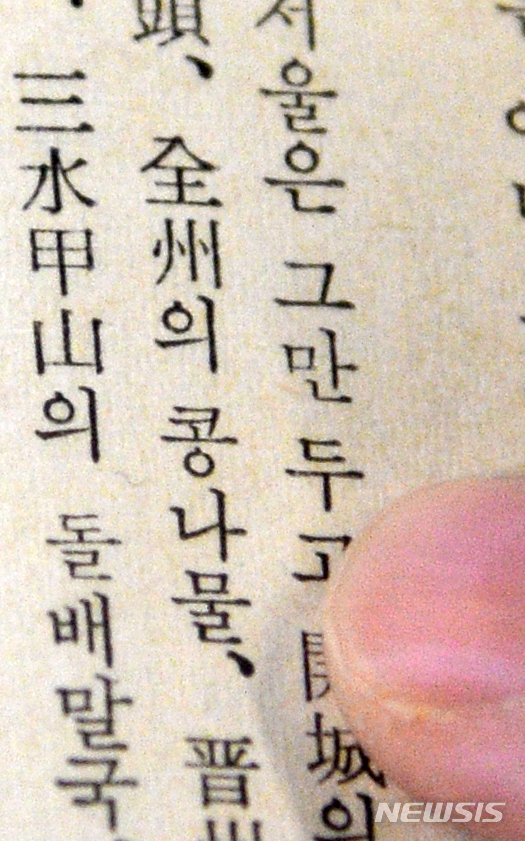 서울은 그만 두고 長城의
頭, 全州의 콩나물, 晋
三水甲山의 돌배말국
NEWSIS